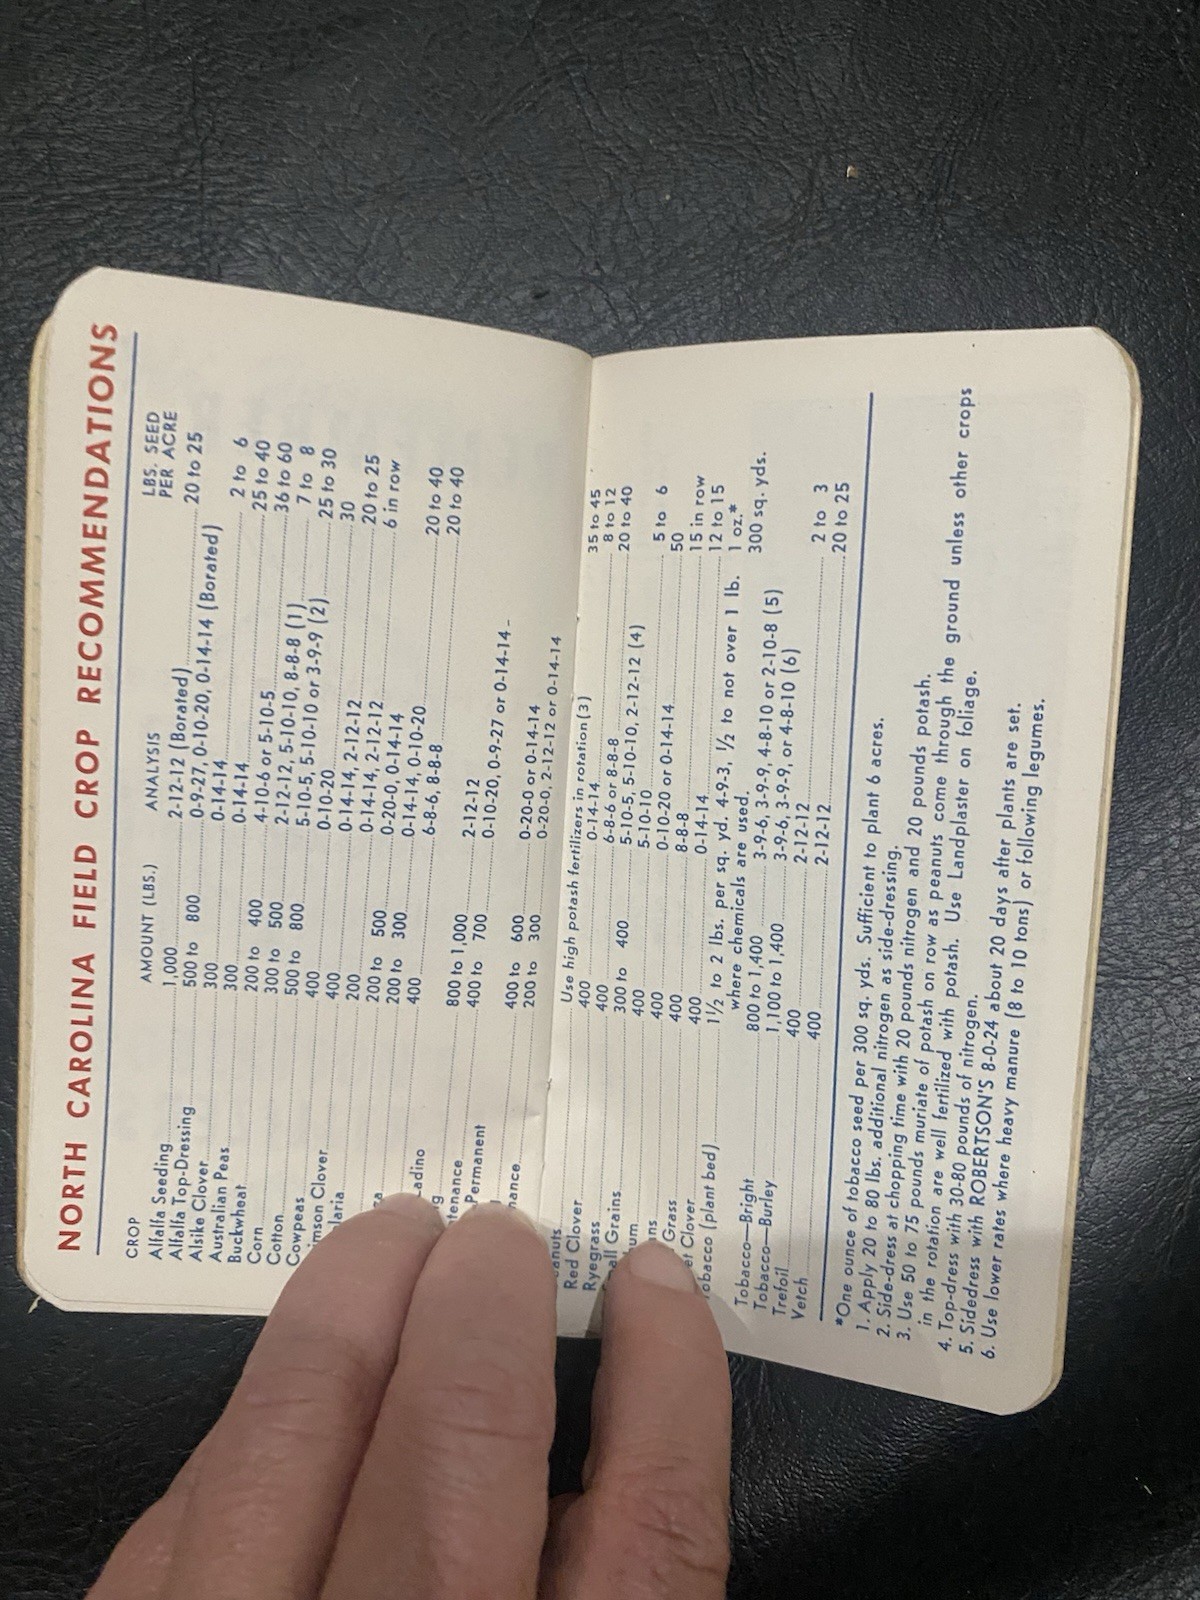 NORTH CAROLINA FIELD CROP RECOMMENDATIONS
CROP AMOUNT (LBS.) ANALYSIS LBS. SEED
PER ACRE
Alfalfa Seeding 1,000 2-12-12 (Borated) 20 to 25
Alfalfa Top-Dressing 500 to 800 0-9-27, 0-10-20, 0-14-14 (Borated)
Alsike Clover 300 0-14-14 2 to 6
Australian Peas 300 0-14-14 25 to 40
Buckwheat 200 to 400 4-10-6 or 5-10-5 36 to 60
Corn 300 to 500 2-12-12, 5-10-10, 8-8-8 (1) 7 to 8
Cotton 500 to 800 5-10-5, 5-10-10 or 3-9-9 (2) 25 to 30
Cowpeas 400 0-10-20 30
Clover 400 0-14-14, 2-12-12 20 to 25
200 0-14-14, 2-12-12 6 in row
200 to 500 0-20-0, 0-14-14
200 to 300 0-14-14, 0-10-20 20 to 40
400 6-6-6, 8-8-8 20 to 40
800 to 1,000 2-12-12
400 to 700 0-10-20, 0-9-27 or 0-14-14
Permanent
400 to 600 0-20-0 or 0-14-14
200 to 300 0-20-0, 2-12-12 or 0-14-14
Use high potash fertilizers in rotation (3) 35 to 45
Red Clover 400 0-14-14 8 to 12
Ryegrass 400 6-6-6 or 8-8-8 20 to 40
Grains 300 to 400 5-10-5, 5-10-10, 2-12-12 (4)
400 5-10-10 5 to 6
400 0-10-20 or 0-14-14 50
Grass 400 8-8-8 15 in row
Clover 400 0-14-14 12 to 15
Tobacco (plant bed) 1½ to 2 lbs. per sq. yd. 4-9-3, ½ to not over 1 lb. 1 oz.*
where chemicals are used. 300 sq. yds.
Tobacco—Bright 800 to 1,400 3-9-6, 3-9-9, 4-8-10 or 2-10-8 (5)
Tobacco—Burley 1,100 to 1,400 3-9-6, 3-9-9, or 4-8-10 (6)
Trefoil 400 2-12-12 2 to 3
Vetch 400 2-12-12 20 to 25
*One ounce of tobacco seed per 300 sq. yds. Sufficient to plant 6 acres.
1. Apply 20 to 80 lbs. additional nitrogen as side-dressing.
2. Side-dress at chopping time with 20 pounds nitrogen and 20 pounds potash.
3. Use 50 to 75 pounds muriate of potash on row as peanuts come through the ground unless other crops
in the rotation are well fertilized with potash. Use Landplaster on foliage.
4. Top-dress with 30-80 pounds of nitrogen.
5. Sidedress with ROBERTSON'S 8-0-24 about 20 days after plants are set.
6. Use lower rates where heavy manure (8 to 10 tons) or following legumes.